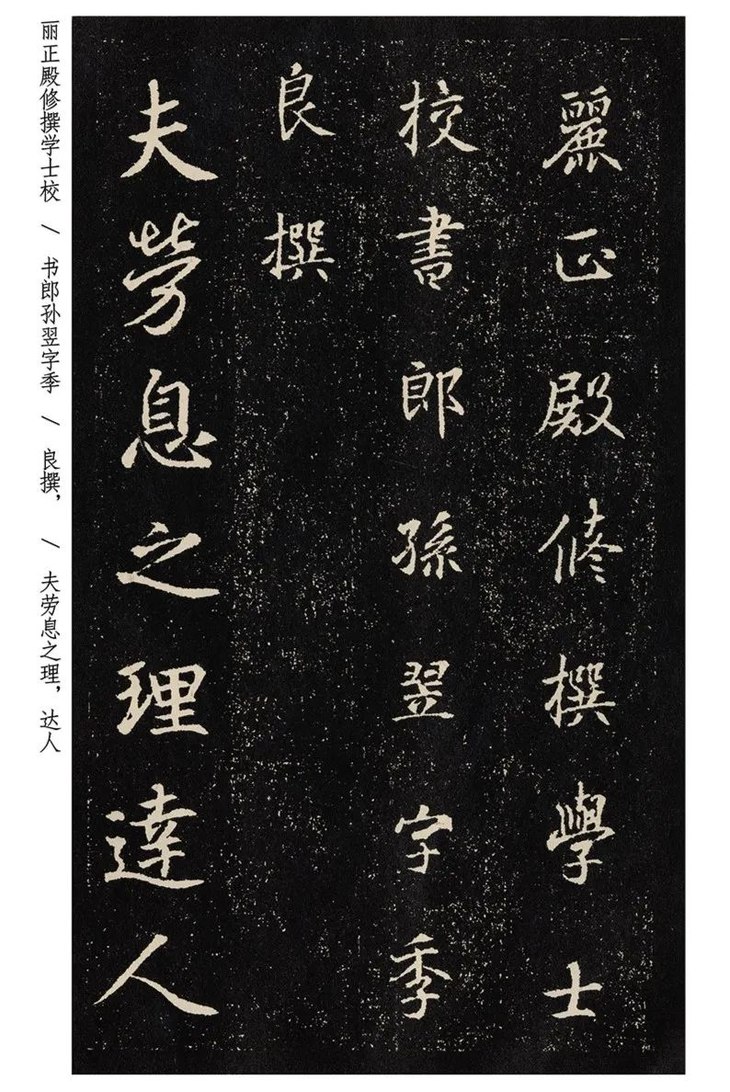 麗正殿修撰學士
校書郎孫翌字季
良撰
夫勞息之理達人
丽正殿修撰学士校 / 书郎孙翌字季 / 良撰， / 夫劳息之理，达人